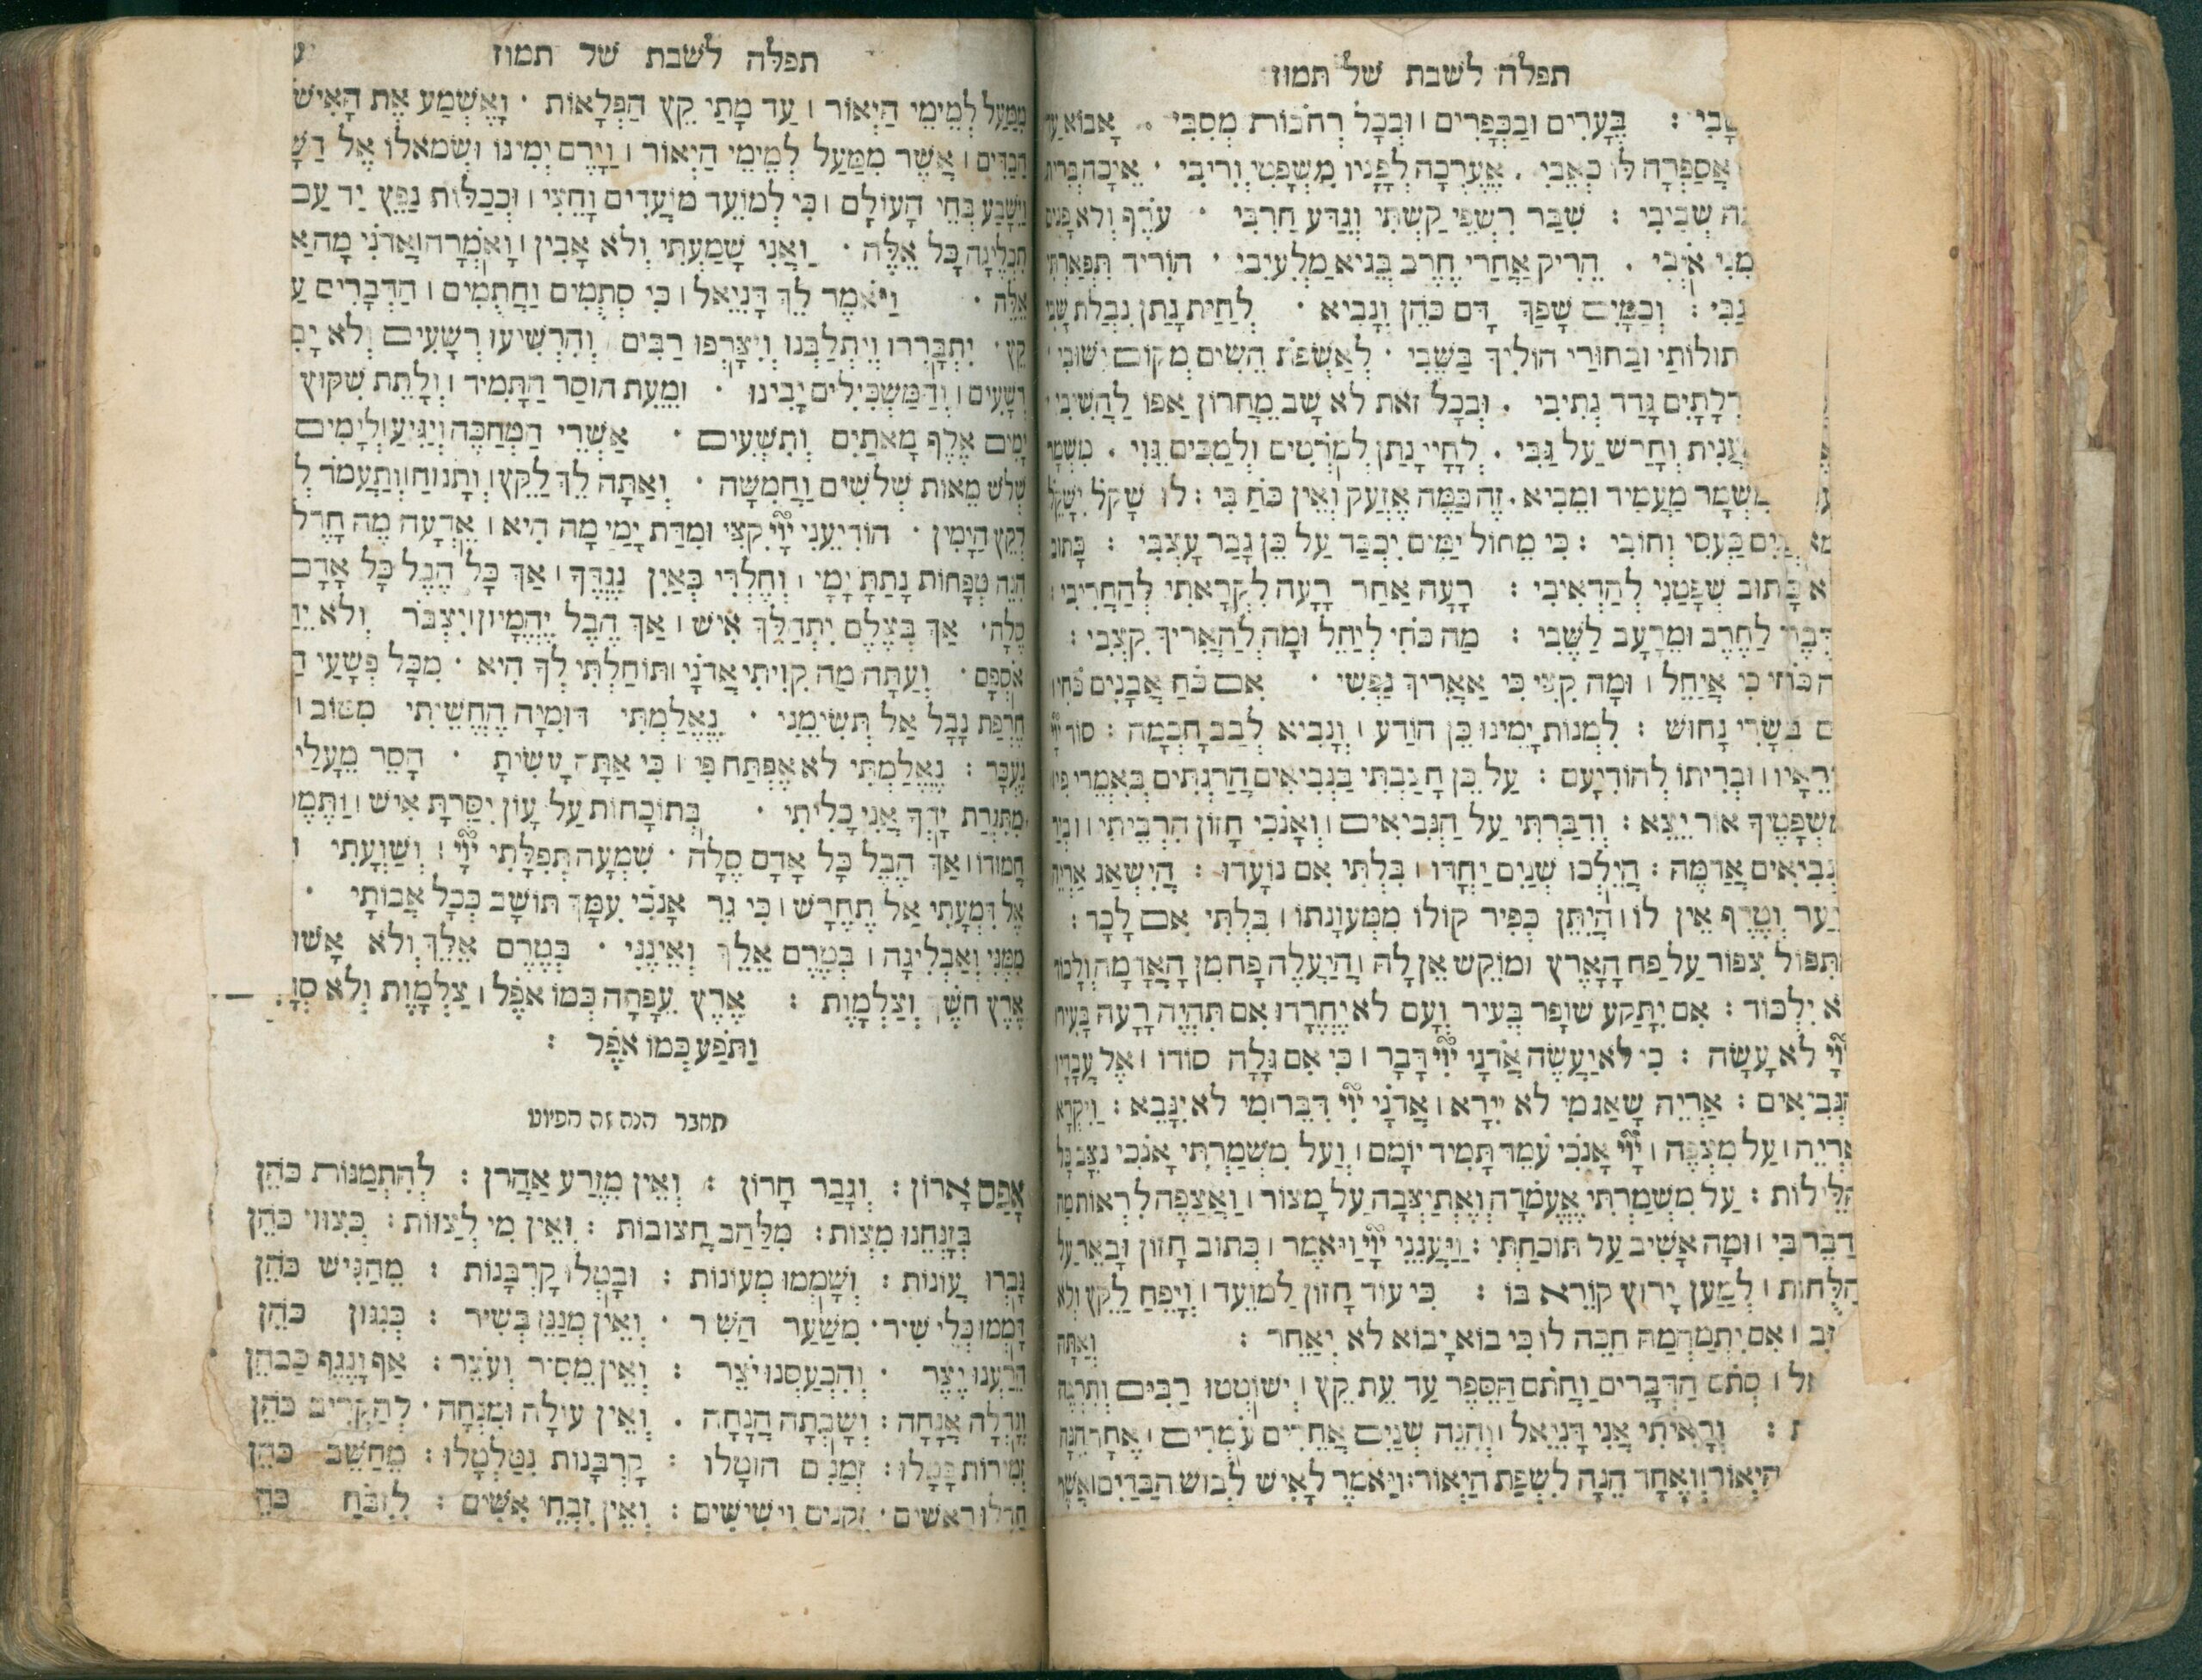 תפלה לשבת של תמוז
בֶּעָרִים וּבַכְּפָרִים ׀ וּבְכָל רְחֹבוֹת מְסִבִּי ·
אֲסַפְּרָה לוֹ כְאֵבִי . אֶעֶרְכָה לְפָנָיו מִשְׁפָּטִי וְרִיבִי ·
שְׁבִיבִי : שִׁבַּר רִשְׁפֵי קַשְׁתִּי וְגִדַּע חַרְבִּי ·
אֹיְבִי . הֵרִיק אַחֲרַי חֶרֶב בְּגֵיא מַלְעִיבִי · הוֹרִיד
וְכַמַּיִם שָׁפַךְ דַּם כֹּהֵן וְנָבִיא · לְחַיַּת נָתַן נִבְלַת
וּבַחוּרַי הוֹלִיךְ בַּשְּׁבִי · לְאַשְׁפֹּת הֵשִׂים מְקוֹם
גָּדַר נְתִיבִי . וּבְכָל זֹאת לֹא שָׁב מֵחֲרוֹן אַפּוֹ
וְחָרַשׁ עַל גַּבִּי . לְחָיַי נָתַן לְמֹרְטִים וּלְמַכִּים גֵּוִי .
מִשְׁמָר מַעֲמִיד וּמֵבִיא . זֶה כַּמֶּה אֶזְעַק וְאֵין כֹּחַ בִּי : לוּ שָׁקֹל יִשָּׁקֵל
כַּעְסִי וְחוֹבִי : כִּי מֵחוֹל יַמִּים יִכְבַּד עַל כֵּן גָּבַר עָצְבִּי :
שְׁפָטַנִי לְהַדְאִיבִי : רָעָה אַחַר רָעָה לִקְרָאתִי לְהַחֲרִיבִי :
לַחֶרֶב וּמֵרָעָב לַשֶּׁבִי : מַה כֹּחִי לְיַחֵל וּמָה לְהַאֲרִיךְ קִצְבִי :
כֹּחִי כִי אֲיַחֵל ׀ וּמָה קִצִּי כִּי אַאֲרִיךְ נַפְשִׁי · אִם כֹּחַ אֲבָנִים כֹּחִי ׀
בְּשָׂרִי נָחוּשׁ : לִמְנוֹת יָמֵינוּ כֵּן הוֹדַע ׀ וְנָבִיא לְבַב חָכְמָה : סוֹד
וּבְרִיתוֹ לְהוֹדִיעָם : עַל כֵּן חָצַבְתִּי בַּנְּבִיאִים הֲרַגְתִּים בְּאִמְרֵי פִי
אוֹר יֵצֵא : וְדִבַּרְתִּי עַל הַנְּבִיאִים ׀ וְאָנֹכִי חָזוֹן הִרְבֵּיתִי ׀
אֲדַמֶּה : הֲיֵלְכוּ שְׁנַיִם יַחְדָּו ׀ בִּלְתִּי אִם נוֹעָדוּ : הֲיִשְׁאַג אַרְיֵה
וְטֶרֶף אֵין לוֹ ׀ הֲיִתֵּן כְּפִיר קוֹלוֹ מִמְּעוֹנָתוֹ ׀ בִּלְתִּי אִם לָכָד :
צִפּוֹר עַל פַּח הָאָרֶץ וּמוֹקֵשׁ אֵין לָהּ ׀ הֲיַעֲלֶה פַּח מִן הָאֲדָמָה וְלָכוֹד
יִלְכּוֹד : אִם יִתָּקַע שׁוֹפָר בְּעִיר וְעָם לֹא יֶחֱרָדוּ אִם תִּהְיֶה רָעָה בְּעִיר
לֹא עָשָׂה : כִּי לֹא יַעֲשֶׂה אֲדֹנָי יְ֯יָ דָּבָר ׀ כִּי אִם גָּלָה סוֹדוֹ ׀ אֶל עֲבָדָיו
הַנְּבִיאִים : אַרְיֵה שָׁאָג מִי לֹא יִירָא ׀ אֲדֹנָי יְיָ דִּבֶּר וּמִי לֹא יִנָּבֵא : וַיִּקְרָא
אַרְיֵה ׀ עַל מִצְפֶּה ׀ יְיָ אָנֹכִי עֹמֵד תָּמִיד יוֹמָם ׀ וְעַל מִשְׁמַרְתִּי אָנֹכִי נִצָּב כָּל
הַלֵּילוֹת : עַל מִשְׁמַרְתִּי אֶעֱמֹדָה וְאֶתְיַצְּבָה עַל מָצוֹר ׀ וַאֲצַפֶּה לִרְאוֹת מַה
יְדַבֵּר בִּי ׀ וּמָה אָשִׁיב עַל תּוֹכַחְתִּי : וַיַּעֲנֵנִי יְיָ וַיֹּאמֶר ׀ כְּתוֹב חָזוֹן וּבָאֵר עַל
הַלֻּחוֹת ׀ לְמַעַן יָרוּץ קוֹרֵא בוֹ : כִּי עוֹד חָזוֹן לַמּוֹעֵד ׀ וְיָפֵחַ לַקֵּץ וְלֹא
אִם יִתְמַהְמַהּ חַכֵּה לוֹ כִּי בוֹא יָבוֹא לֹא יְאַחֵר : וְאַתָּה
סְתֹם הַדְּבָרִים וַחֲתֹם הַסֵּפֶר עַד עֵת קֵץ ׀ יְשׁוֹטְטוּ רַבִּים וְתִרְבֶּה
וְרָאִיתִי אֲנִי דָּנִיֵּאל ׀ וְהִנֵּה שְׁנַיִם אֲחֵרִים עֹמְדִים ׀ אֶחָד הֵנָּה
הַיְאוֹר ׀ וְאֶחָד הֵנָּה לִשְׂפַת הַיְאוֹר : וַיֹּאמֶר לָאִישׁ לְבוּשׁ הַבַּדִּים ׀ אֲשֶׁר
תפלה לשבת של תמוז
מִמַּעַל לְמֵימֵי הַיְאוֹר ׀ עַד מָתַי קֵץ הַפְּלָאוֹת · וָאֶשְׁמַע אֶת הָאִישׁ
הַבַּדִּים ׀ אֲשֶׁר מִמַּעַל לְמֵימֵי הַיְאוֹר ׀ וַיָּרֶם יְמִינוֹ וּשְׂמֹאלוֹ אֶל
וַיִּשָּׁבַע בְּחֵי הָעוֹלָם ׀ כִּי לְמוֹעֵד מוֹעֲדִים וָחֵצִי ׀ וּכְכַלּוֹת נַפֵּץ יַד עַם
תִּכְלֶינָה כָּל אֵלֶּה · וַאֲנִי שָׁמַעְתִּי וְלֹא אָבִין ׀ וָאֹמְרָה ׀ אֲדֹנִי מָה
אֵלֶּה · וַיֹּאמֶר לֵךְ דָּנִיֵּאל ׀ כִּי סְתֻמִים וַחֲתֻמִים ׀ הַדְּבָרִים
קֵץ · יִתְבָּרְרוּ וְיִתְלַבְּנוּ וְיִצָּרְפוּ רַבִּים וְהִרְשִׁיעוּ רְשָׁעִים וְלֹא
רְשָׁעִים ׀ וְהַמַּשְׂכִּילִים יָבִינוּ · וּמֵעֵת הוּסַר הַתָּמִיד ׀ וְלָתֵת שִׁקּוּץ
יָמִים אֶלֶף מָאתַיִם וְתִשְׁעִים · אַשְׁרֵי הַמְחַכֶּה וְיַגִּיעַ ׀ לְיָמִים
שְׁלֹשׁ מֵאוֹת שְׁלֹשִׁים וַחֲמִשָּׁה · וְאַתָּה לֵךְ לַקֵּץ ׀ וְתָנוּחַ ׀ וְתַעֲמֹד
לְקֵץ הַיָּמִין · הוֹדִיעֵנִי יְיָ קִצִּי וּמִדַּת יָמַי מָה הִיא ׀ אֵדְעָה מֶה חָדֵל
הִנֵּה טְפָחוֹת נָתַתָּ יָמַי ׀ וְחֶלְדִּי כְּאַיִן נֶגְדֶּךָ ׀ אַךְ כָּל הֶבֶל כָּל אָדָם
סֶלָה · אַךְ בְּצֶלֶם יִתְהַלֶּךְ אִישׁ ׀ אַךְ הֶבֶל יֶהֱמָיוּן ׀ יִצְבֹּר וְלֹא
אֹסְפָם · וְעַתָּה מַה קִוִּיתִי אֲדֹנָי ׀ תּוֹחַלְתִּי לְךָ הִיא · מִכָּל פְּשָׁעַי
חֶרְפַּת נָבָל אַל תְּשִׂימֵנִי · נֶאֱלַמְתִּי דּוּמִיָּה הֶחֱשֵׁיתִי מִטּוֹב ׀
נֶעְכָּר : נֶאֱלַמְתִּי לֹא אֶפְתַּח פִּי ׀ כִּי אַתָּה עָשִׂיתָ · הָסֵר מֵעָלַי
מִתִּגְרַת יָדְךָ אֲנִי כָלִיתִי · בְּתוֹכָחוֹת עַל עָוֹן יִסַּרְתָּ אִישׁ ׀
חֲמוּדוֹ ׀ אַךְ הֶבֶל כָּל אָדָם סֶלָה · שִׁמְעָה תְפִלָּתִי יְיָ ׀ וְשַׁוְעָתִי
אֶל דִּמְעָתִי אַל תֶּחֱרַשׁ ׀ כִּי גֵר אָנֹכִי עִמָּךְ תּוֹשָׁב כְּכָל אֲבוֹתָי ·
מִמֶּנִּי וְאַבְלִיגָה ׀ בְּטֶרֶם אֵלֵךְ וְאֵינֶנִּי · בְּטֶרֶם אֵלֵךְ וְלֹא
אֶרֶץ חֹשֶׁךְ וְצַלְמָוֶת : אֶרֶץ עֵפָתָה כְּמוֹ אֹפֶל ׀ צַלְמָוֶת וְלֹא
וַתֹּפַע כְּמוֹ אֹפֶל :
מחבר הנה זה הפיוט
אָפֵס אָרוֹן : וְגָבַר חָרוֹן : וְאֵין מִזֶּרַע אַהֲרֹן : לְהִתְמַנּוֹת כֹּהֵן
בְּזָנְחֵנוּ מִצְוֹת : מִלַּהַב חֲצוּבוֹת : וְאֵין מִי לְצַוּוֹת : כְּצִוּוּי כֹּהֵן
גָּבְרוּ עֲוֹנוֹת : וְשָׁמְמוּ מְעוֹנוֹת : וּבָטְלוּ קָרְבָּנוֹת : מֵהַגִּישׁ כֹּהֵן
דָּמְמוּ כְּלֵי שִׁיר · מִשַּׁעַר הַשִּׁר · וְאֵין מְנַגֵּן בְּשִׁיר : כְּנִגּוּן כֹּהֵן
הֲרֵעֵנוּ יֶצֶר · וְהִכְעַסְנוּ יֹצֵר : וְאֵין מֵסִיר וְעֹצֵר : אַף וָנֶגֶף כַּכֹּהֵן
וְגָדְלָה אֲנָחָה : וְשָׁבְתָה הֲנָחָה . וְאֵין עוֹלָה וּמִנְחָה · לְהַקְרִיב כֹּהֵן
זְמִירוֹת בָּטְלוּ : זְמַנִּים הוּטָלוּ : קָרְבָּנוֹת נִטַּלְטָלוּ : מֵחַשֵּׁב כֹּהֵן
חָדְלוּ רָאשִׁים · זְקֵנִים וִישִׁישִׁים : וְאֵין זִבְחֵי אִשִּׁים : לִזְבֹּחַ